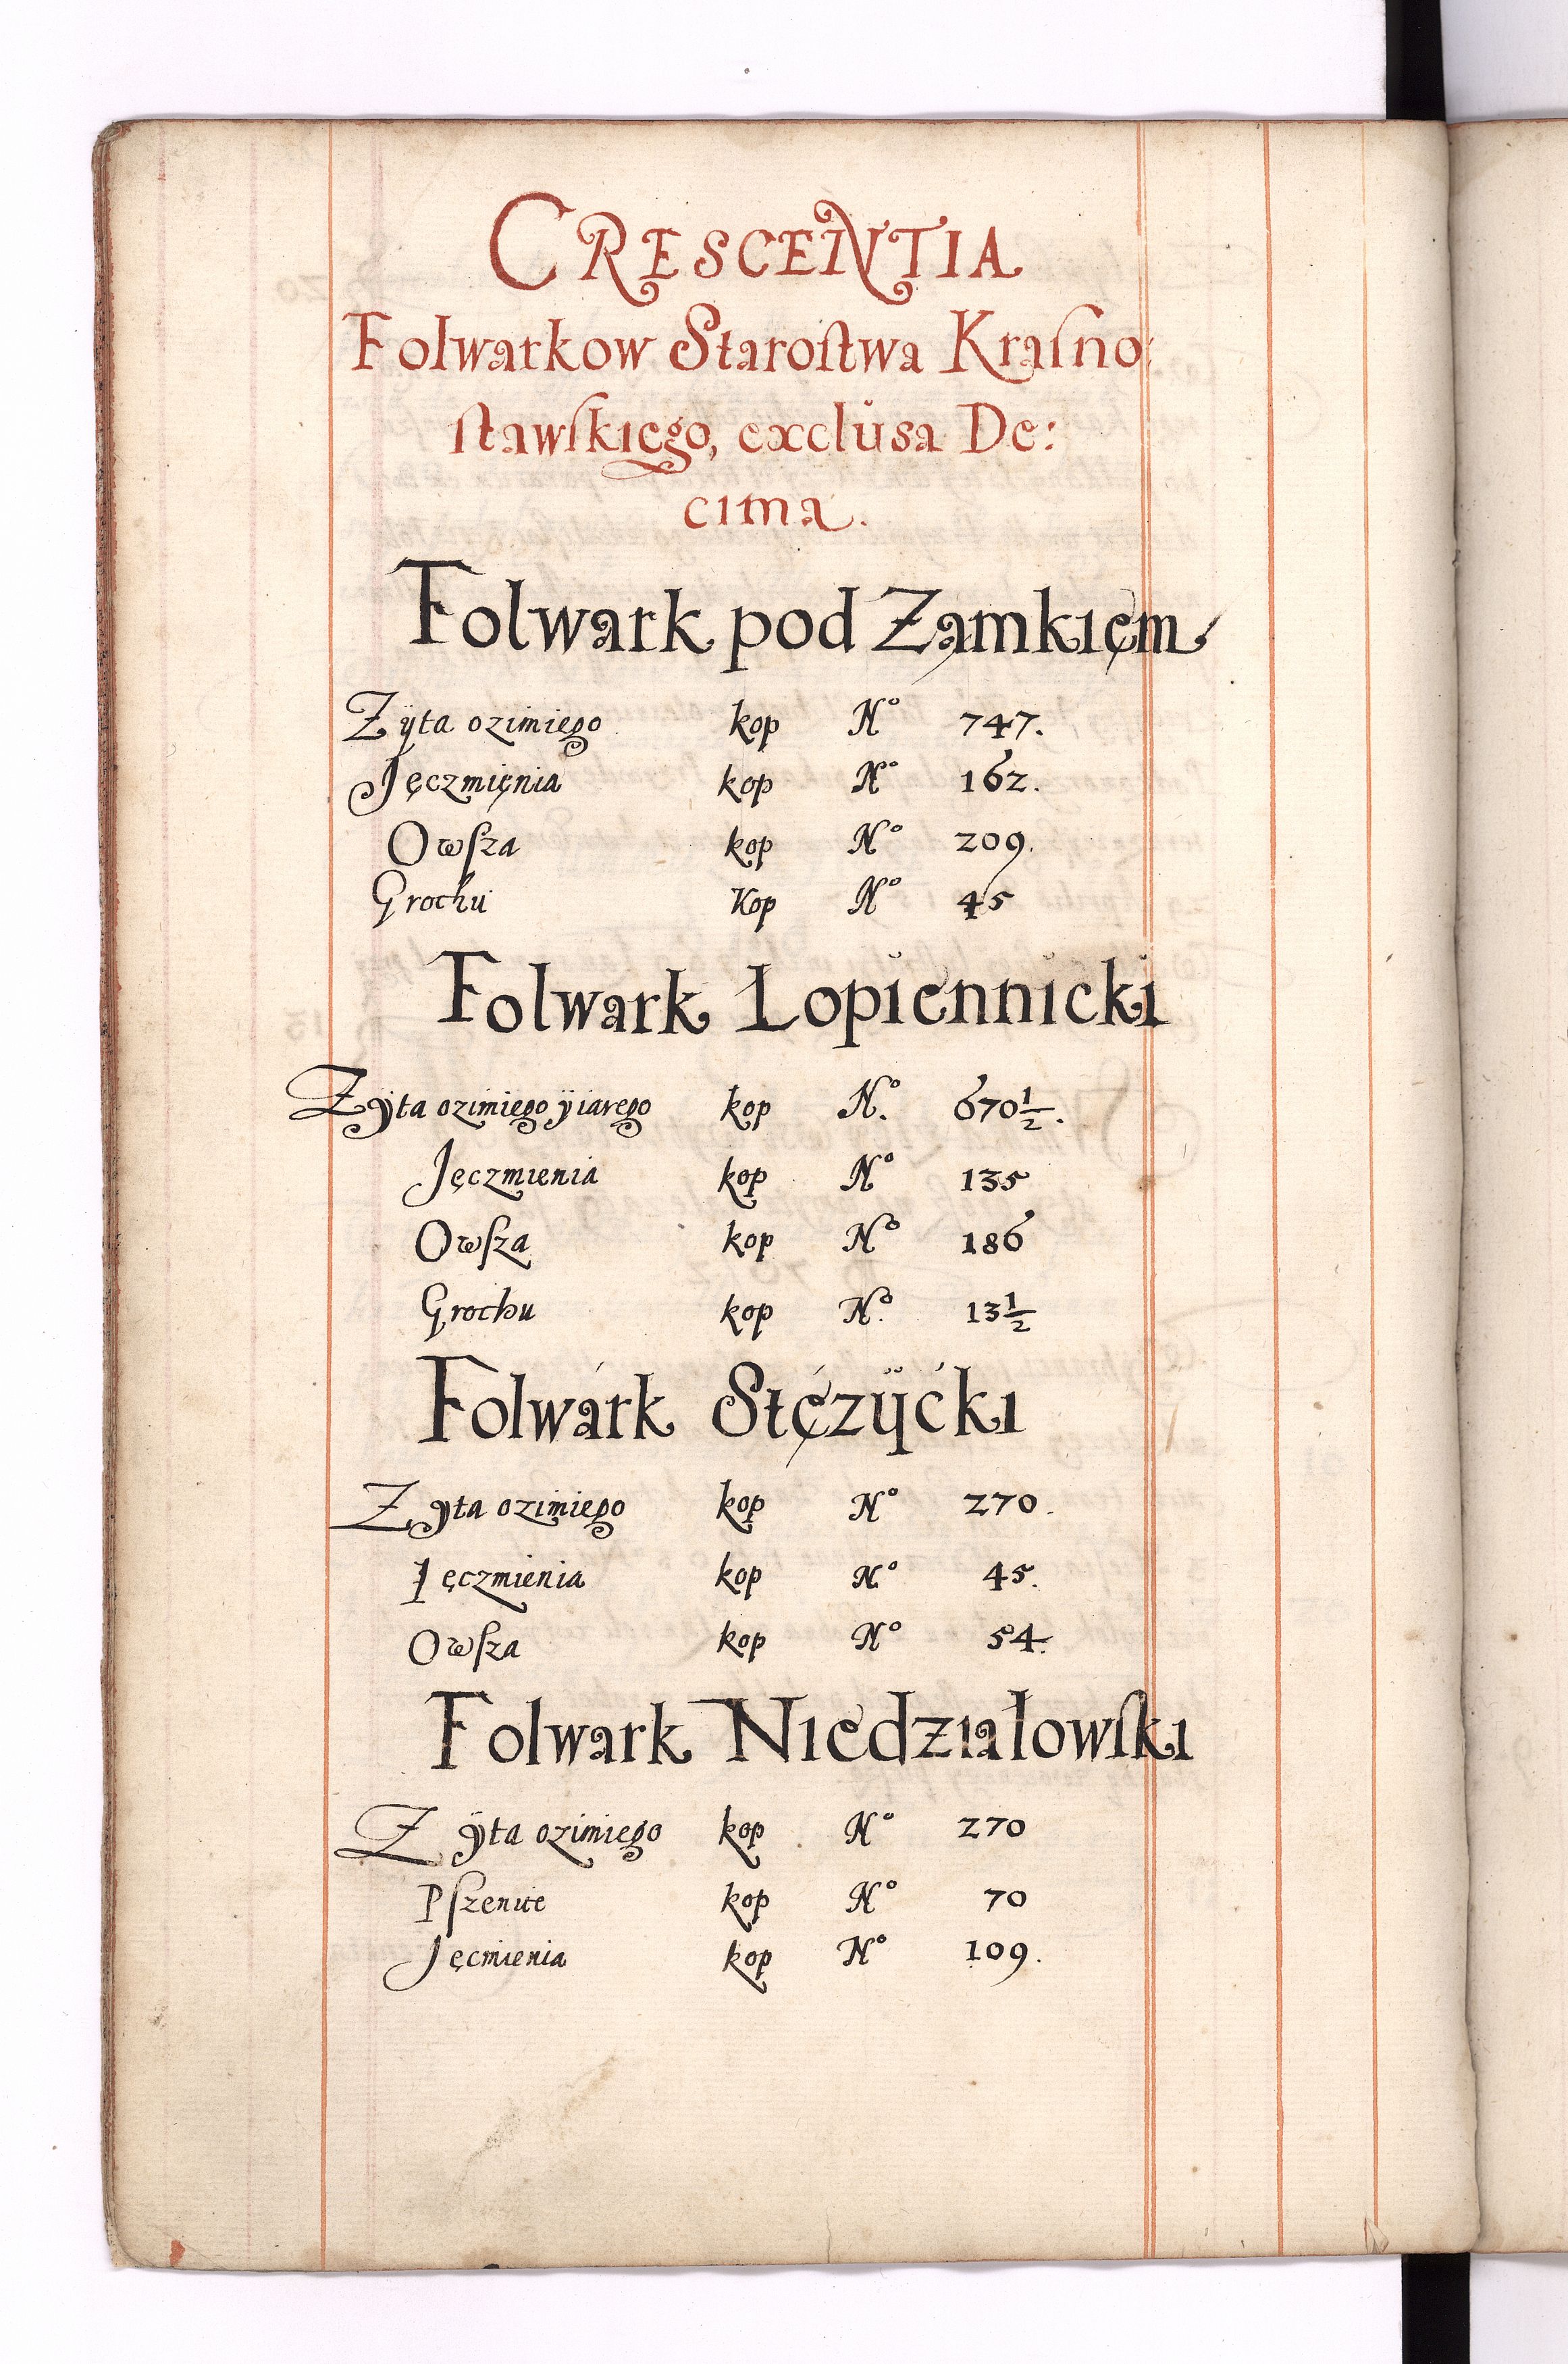 CRESCENTIA
Folwarkow Staroſtwa Kraſno:
ſtawſkiego, exclusa De:
cima.
Folwark pod Zamkięm
Zÿta ozimiego kop Nº 747.
Jęczmięnia kop Nº 162.
Owſza kop Nº 209.
Grochu kop Nº 45
Folwark Lopiennicki
Zÿta ozimiego ÿiarego kop Nº. 670 1/2.
Jęczmienia kop Nº 135
Owſza kop Nº 186
Grochu kop Nº. 13 1/2
Folwark Stęzÿcki
Zyta ozimiego kop Nº 270.
Ięczmienia kop Nº 45.
Owſza kop Nº 54.
Folwark Niedziałowſki
Zÿta ozimiego kop Nº 270
Pſzenice kop Nº 70
Jęcmienia kop Nº 109.